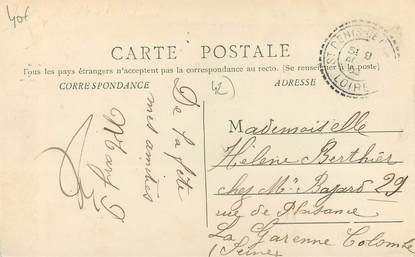 40f
CARTE POSTALE
Tous les pays étrangers n'acceptent pas la correspondance au recto. (Se renseigner à la poste)
CORRESPONDANCE
ADRESSE
42
ST DENIS
LOIRE
De la fête
mes amitiés
Mary
Mademoiselle
Hélène Berthier
chez Mr Bajard 29
rue de Plaisance
La Garenne Colombe
(Seine)